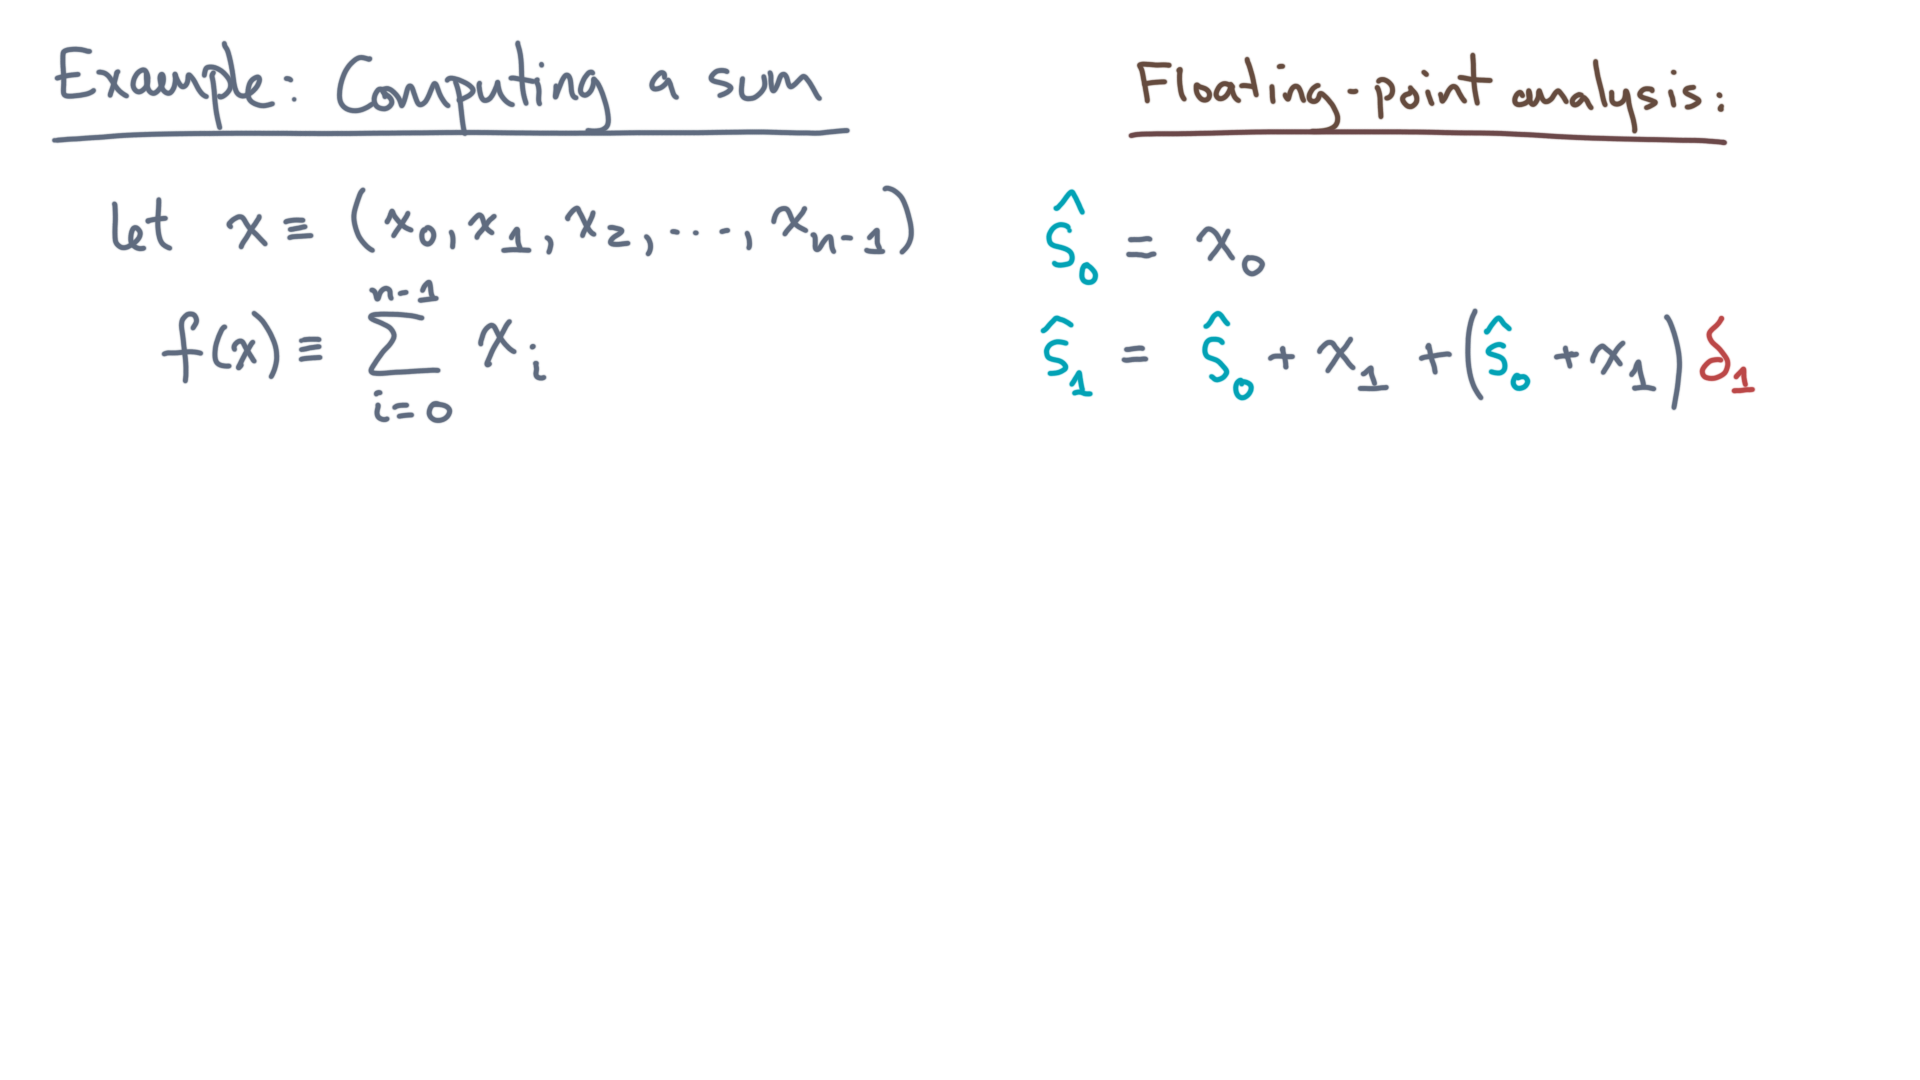 Example: Computing a sum
let x ≡ (x₀, x₁, x₂, ..., xₙ₋₁)
f(x) ≡ ∑_{i=0}^{n-1} xᵢ
Floating-point analysis:
ŝ₀ = x₀
ŝ₁ = ŝ₀ + x₁ + (ŝ₀ + x₁) δ₁